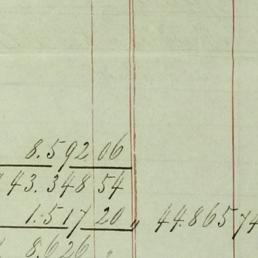 8.592 06
43.348 54
1.517 20 „ 44.865 74
8.626 „